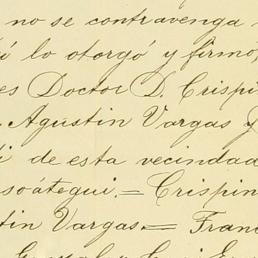 no se contravenga
í lo otorgó y firmó,
es Doctor D. Crispi
Agustin Vargas y
i de esta vecindad
soátegui.= Crispin
tin Vargas.= Fran